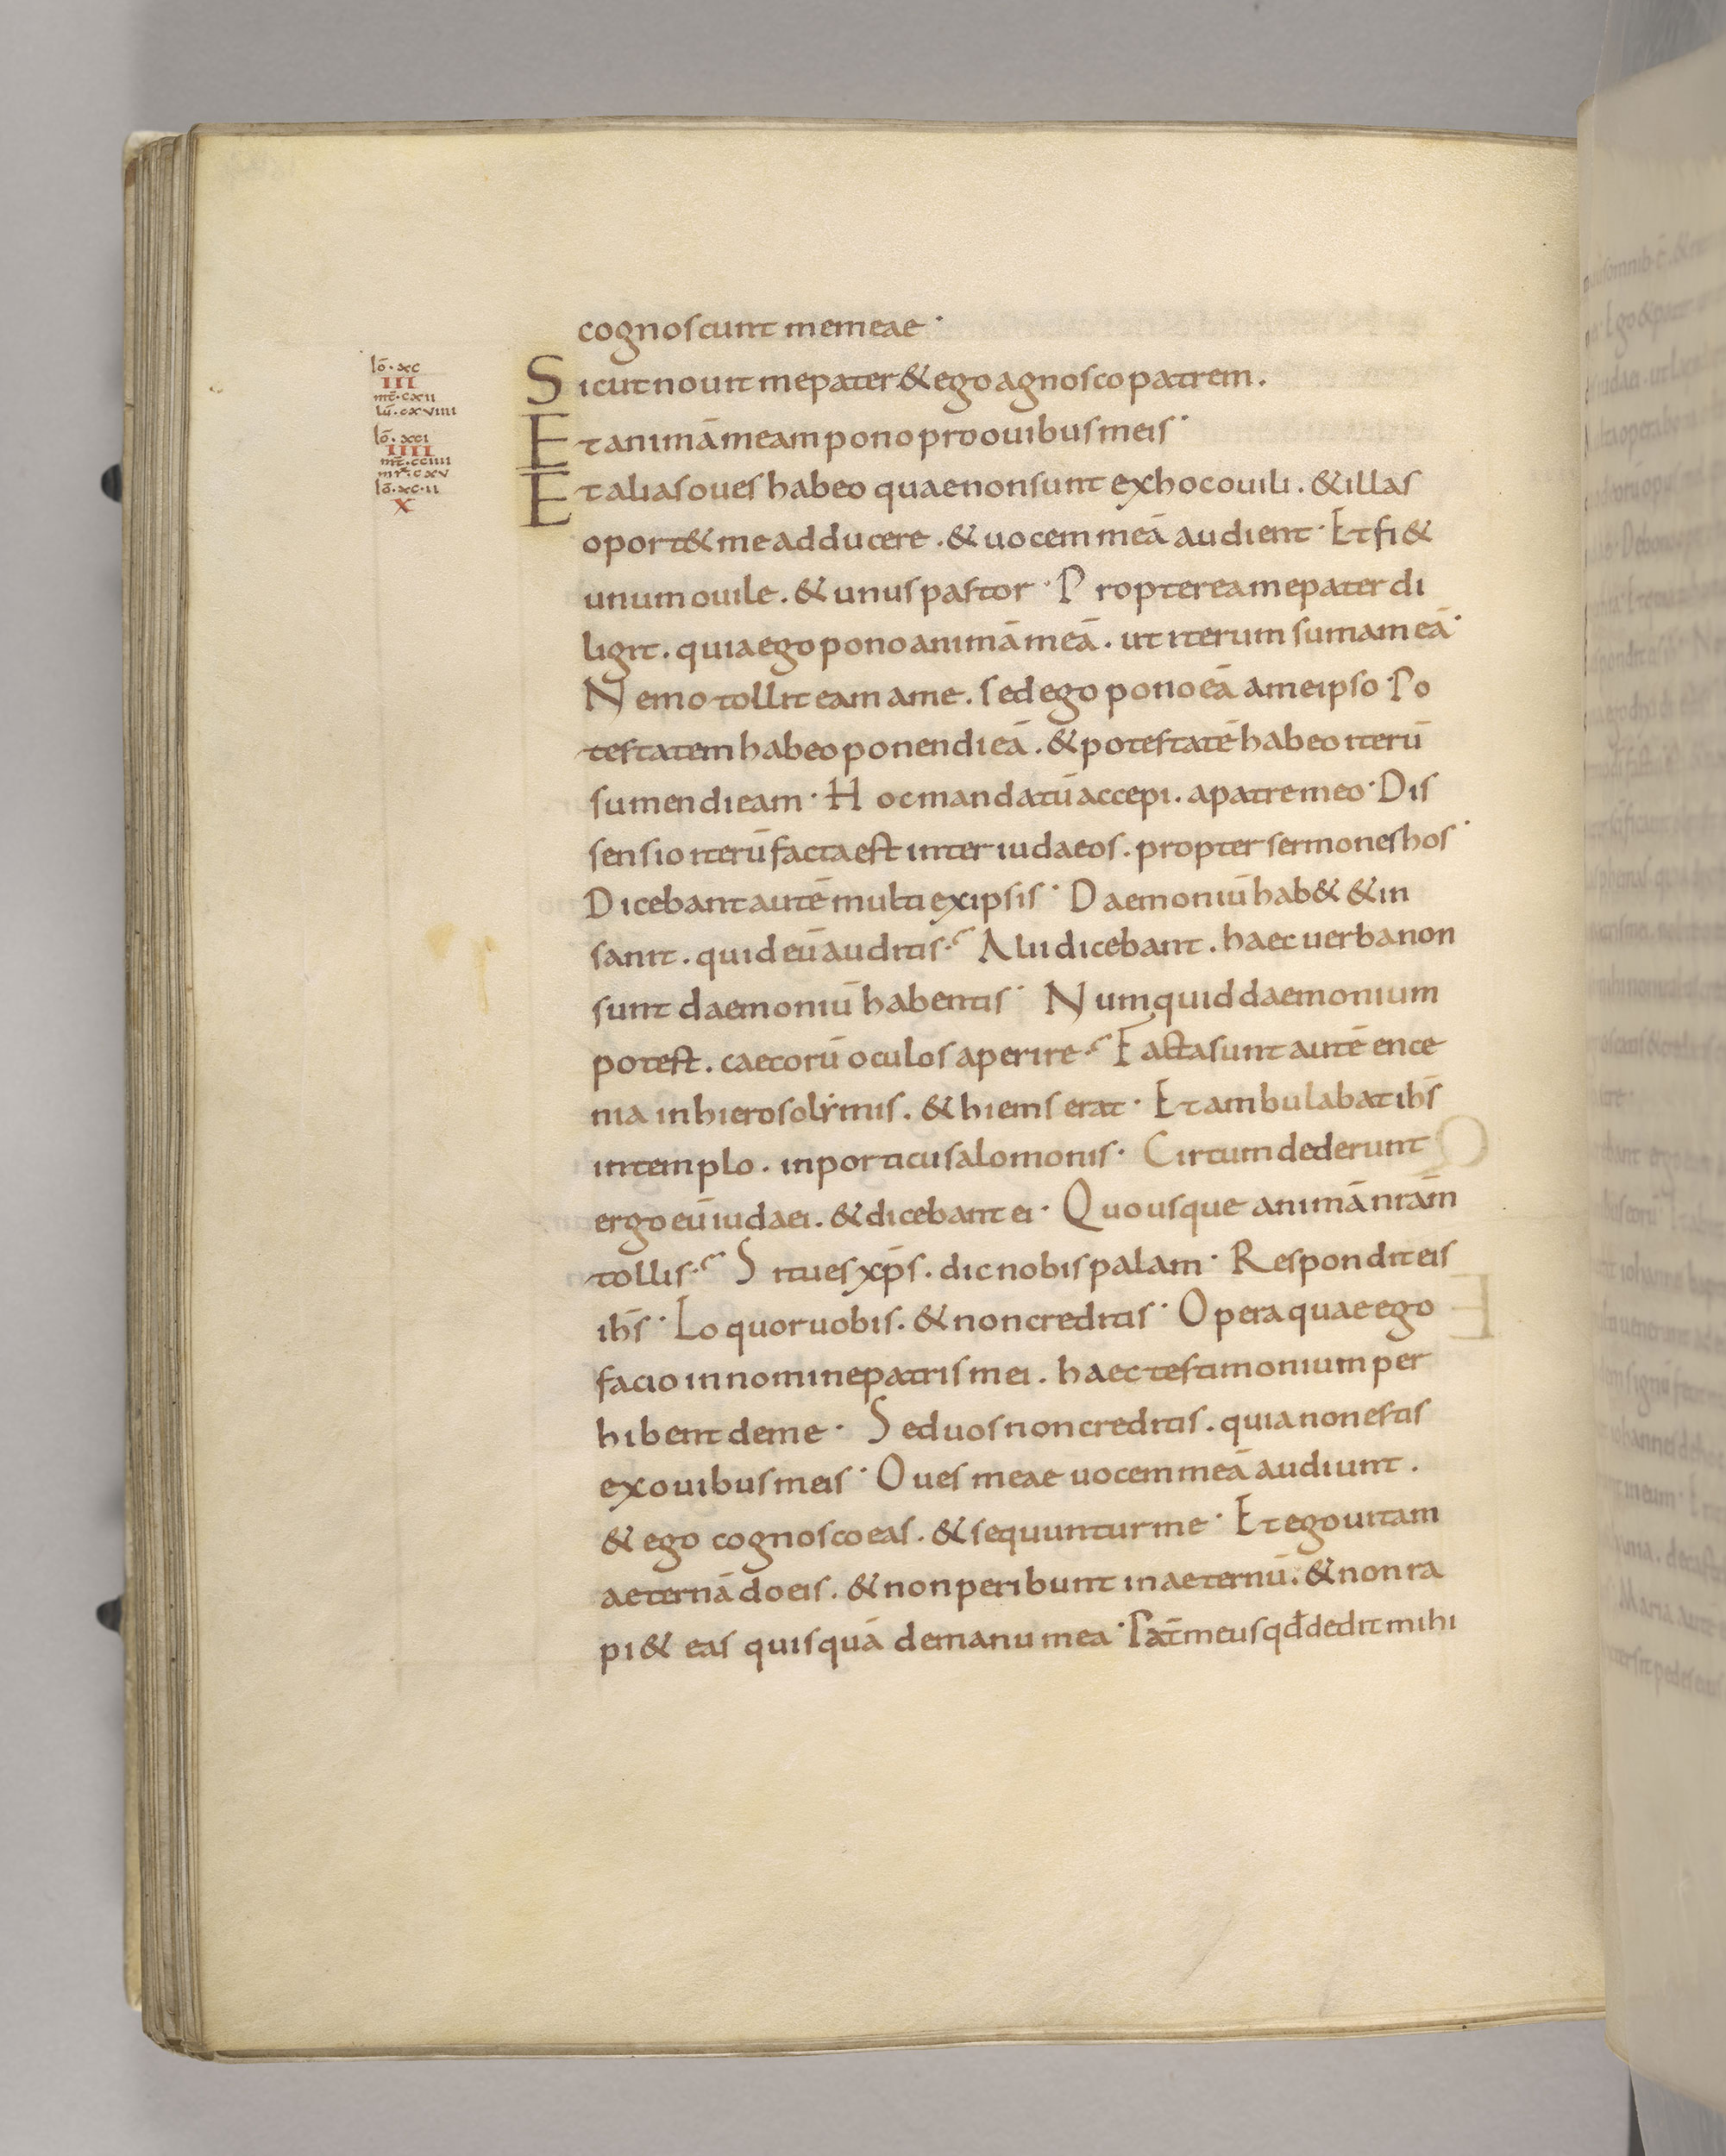 cognoscunt me meae ·
lō · xc
III
mt̄ · cxii
lū · cxviiii
Sicut nouit me pater & ego agnosco patrem .
lō · xci
IIII
mt̄ · cciiii
mr̄ · cxv
Et animā meam pono pro ouibus meis ·
lō · xc · ii
X
Et alias oues habeo quae non sunt ex hoc ouili . & illas
oport& me adducere . & uocem meā audient · Et fi&
unum ouile . & unus pastor · Propterea me pater di
ligit . quia ego pono animā meā . ut iterum sumam eā ·
Nemo tollit eam a me . sed ego pono eā a me ipso · Po
testatem habeo ponendi eā . & potestatē habeo iterū
sumendi eam · Hoc mandatū accepi . a patre meo · Dis
sensio iterū facta est inter iudaeos . propter sermones hos ·
Dicebant autē multi ex ipsis · Daemoniū hab& & in
sanit . quid eū auditis ? Alii dicebant . haec uerba non
sunt daemoniū habentis · Numquid daemonium
potest . caecorū oculos aperire ? Facta sunt autē ence
nia in hierosolẏmis . & hiems erat · Et ambulabat ih̄s
in templo . in porticu salomonis · Circumdederunt
ergo eū iudaei . & dicebant ei · Quousque animā nrām
tollis ? Si tu es xp̄s . dic nobis palam · Respondit eis
ih̄s · Loquor uobis . & non creditis · Opera quae ego
facio in nomine patris mei . haec testimonium per
hibent de me · Sed uos non creditis . quia non estis
ex ouibus meis · Oues meae uocem meā audiunt .
& ego cognosco eas . & sequuntur me · Et ego uitam
aeternā do eis . & non peribunt in aeternū . & non ra
pi& eas quisquā de manu mea · Pat̄ meus qđ dedit mihi